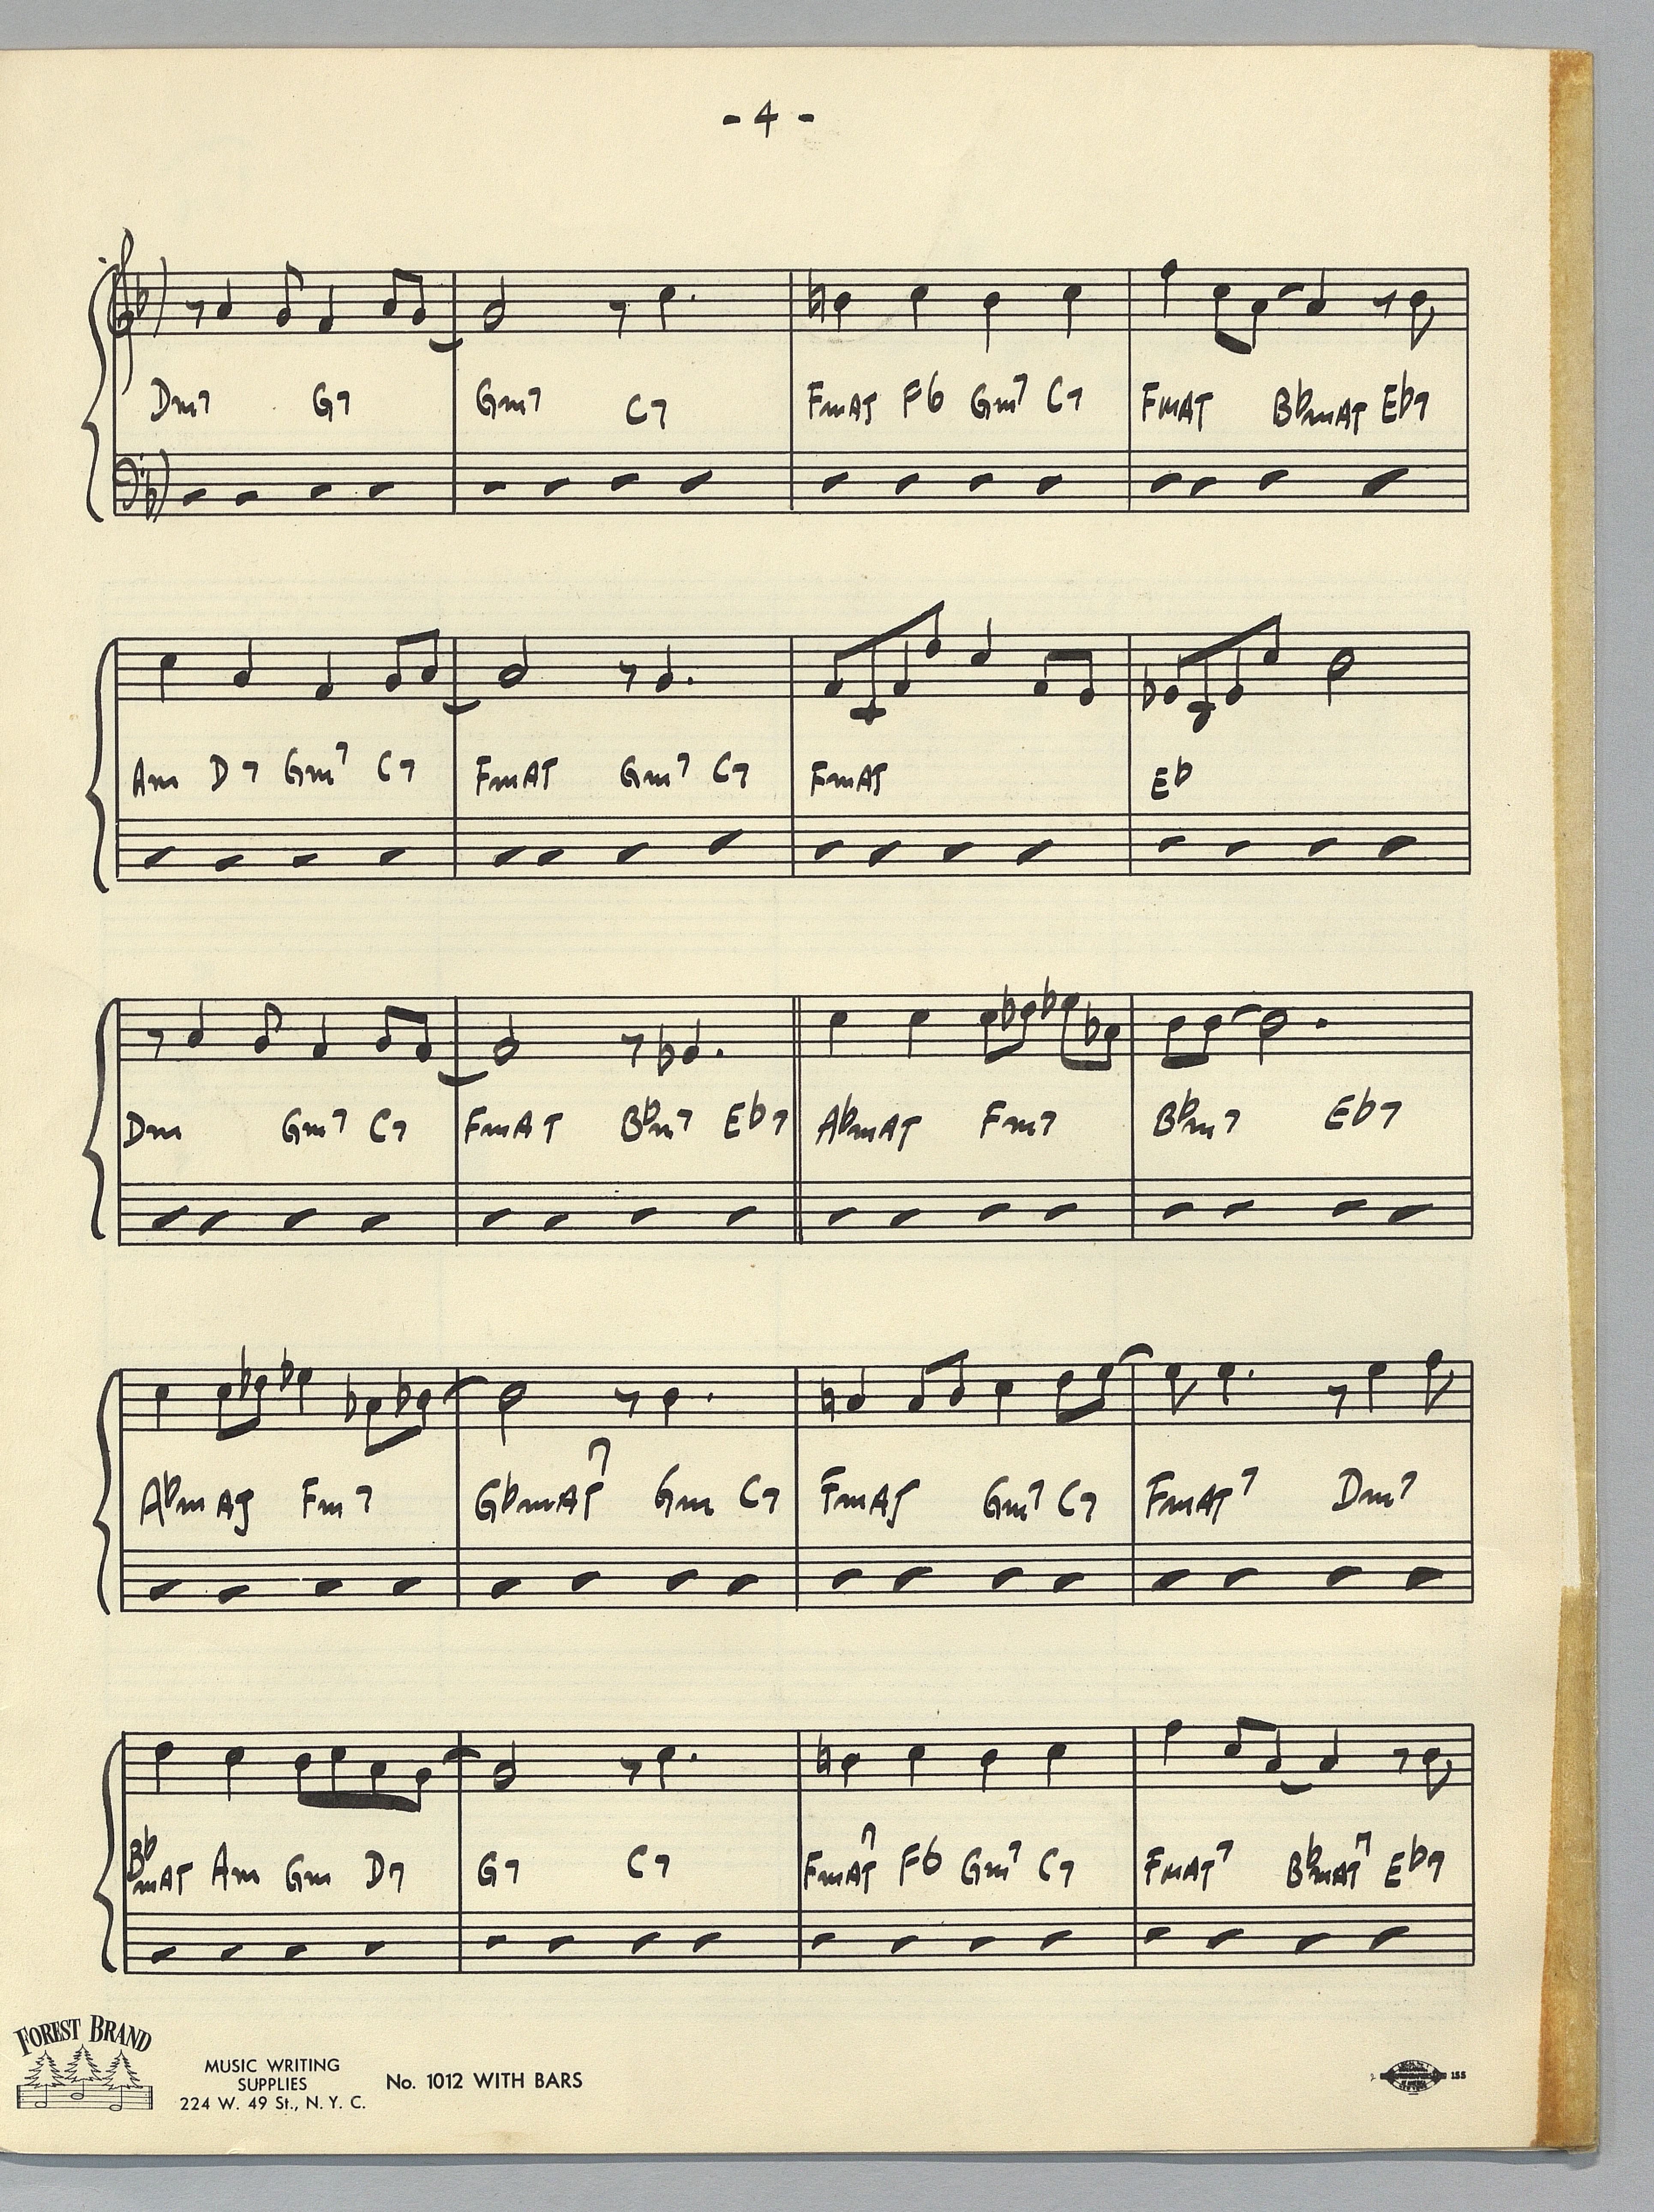 - 4 -
Dm7 G7 Gm7 C7 FmAJ F6 Gm7 C7 FmAJ B♭mAJ E♭7
Am D7 Gm7 C7 FmAJ Gm7 C7 FmAJ E♭
Dm Gm7 C7 FmAJ B♭m7 E♭7 A♭mAJ Fm7 B♭m7 E♭7
A♭mAJ Fm7 G♭mAJ7 Gm C7 FmAJ Gm7 C7 FmAJ7 Dm7
B♭mAJ Am Gm D7 G7 C7 FmAJ7 F6 Gm7 C7 FmAJ7 B♭mAJ7 E♭7
FOREST BRAND
MUSIC WRITING
SUPPLIES
224 W. 49 St., N. Y. C.
No. 1012 WITH BARS
155